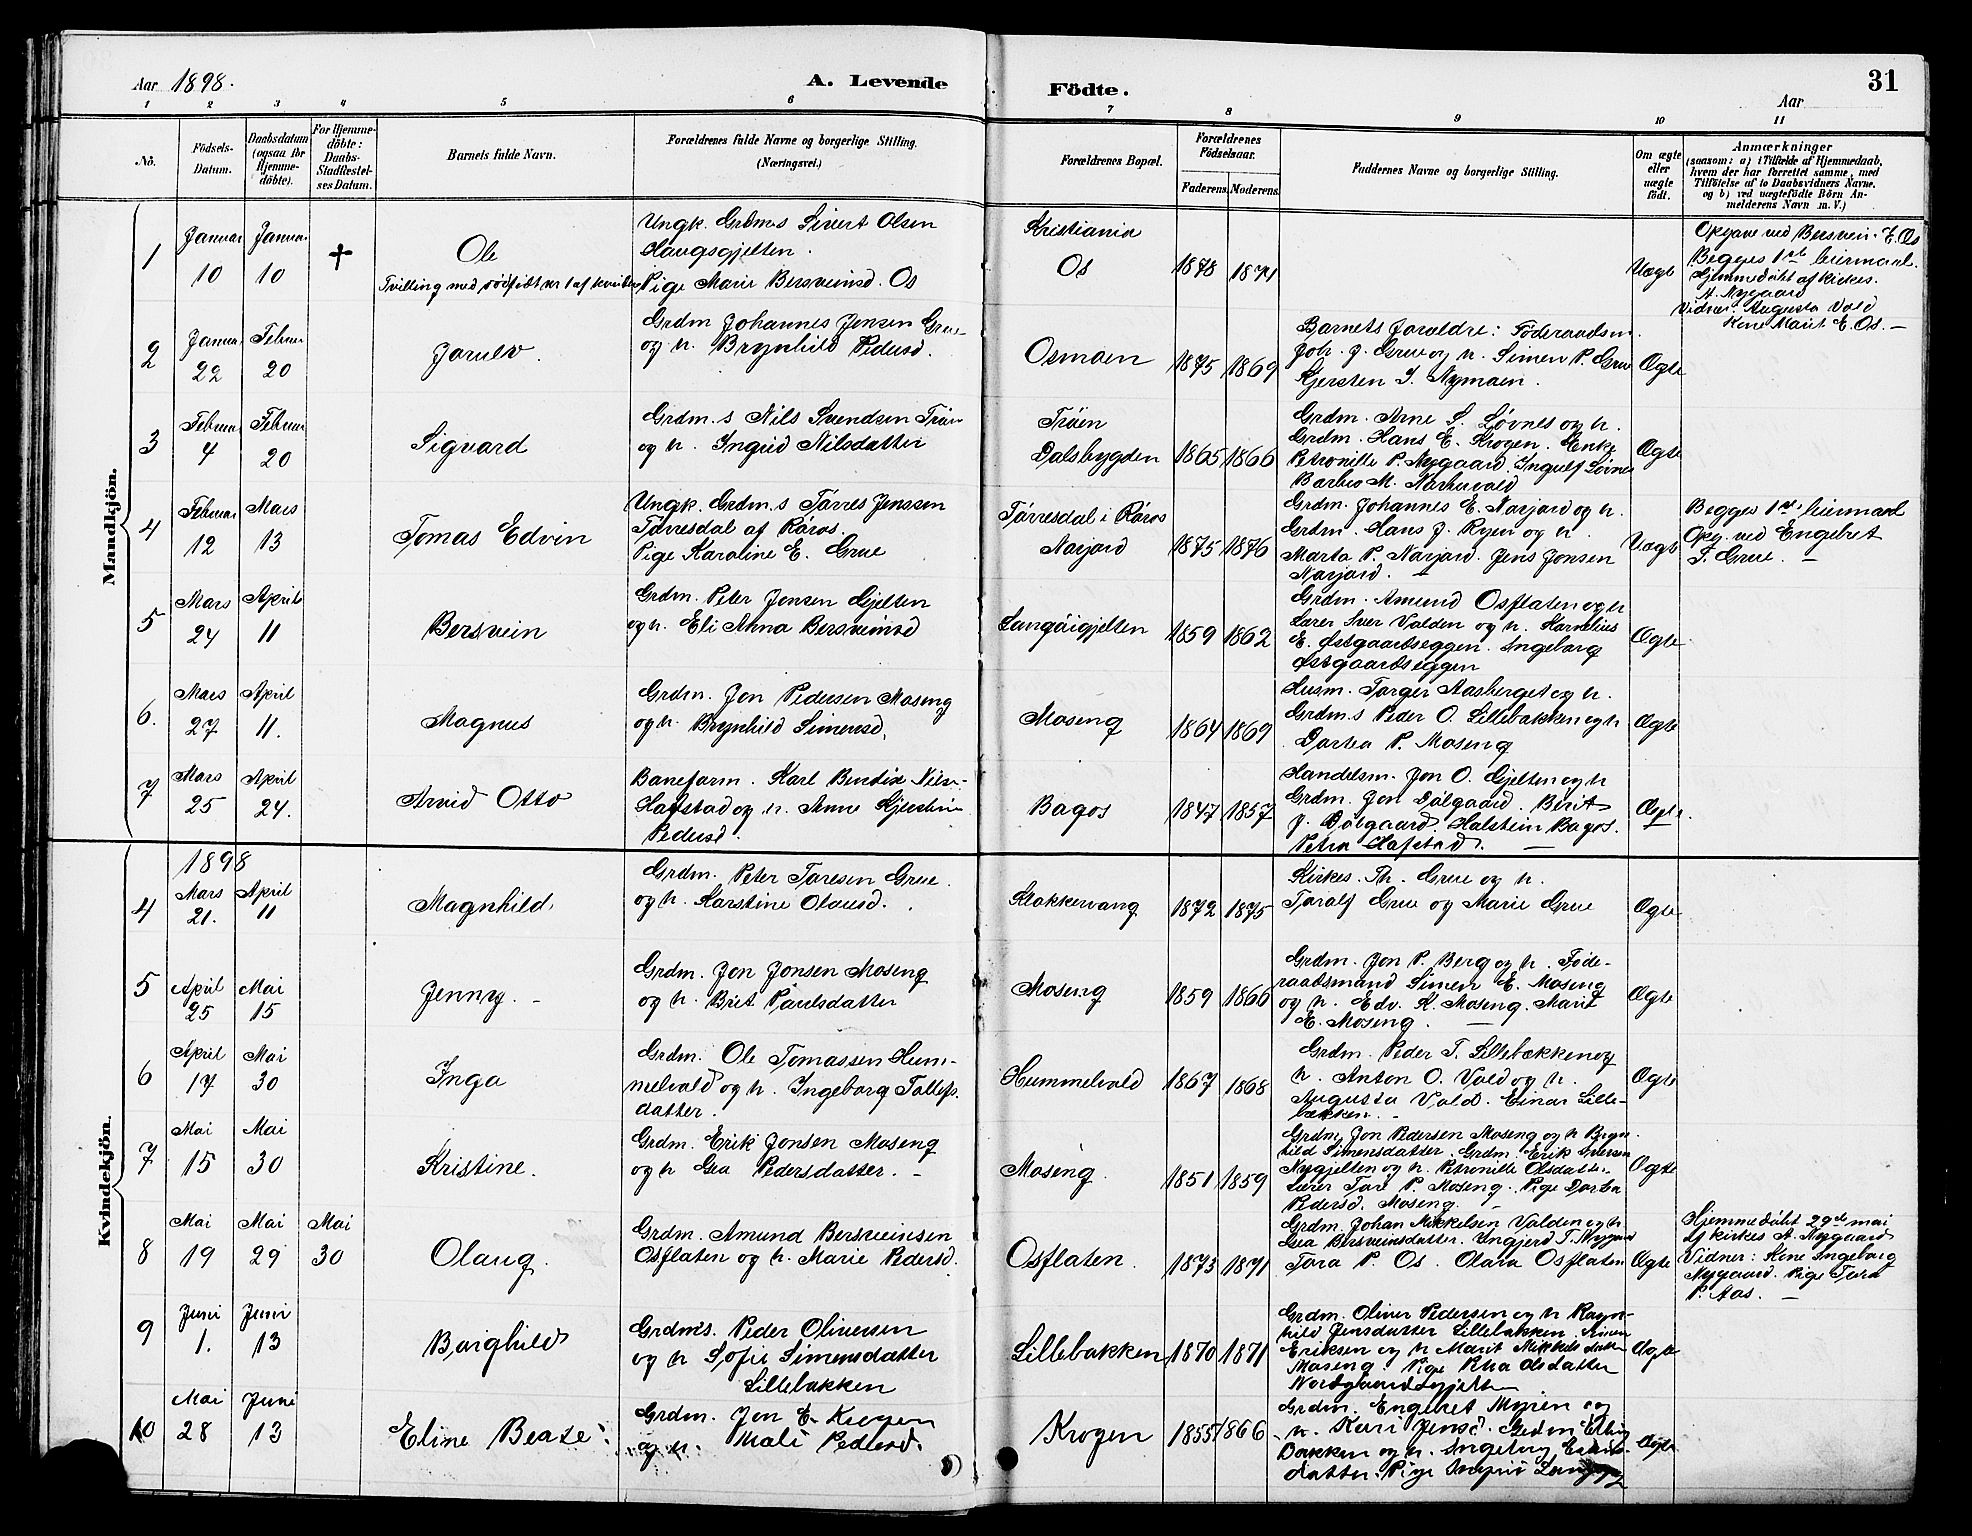 Aar 1898.
A. Levende
Födte.
31
Aar
1 2 3 4 5 6 7 8 9 10 11
No.
Födsels-Datum.
Daabsdatum (ogsaa for Hjemme-döbte).
For Hjemme-döbte: Daabs-Stadfæstel-ses Datum.
Barnets fulde Navn.
Forældrenes fulde Navne og borgerlige Stilling. (Næringsvei.)
Forældrenes Bopæl.
Forældrenes Födselsaar.
Faderens. Moderens.
Faddernes Navne og borgerlige Stilling.
Om ægte eller uægte födt.
Anmærkninger
(saasom: a) i Tilfælde af Hjemmedaab,
hvem der har forrettet samme, med
Tilföielse af to Daabsvidners Navne.
og b) ved uægtefödte Börn An-
melderens Navn m. V.)
Mandkjön.
1
Januar 10
Januar 10
†
Ole
Tvilling med dødfødt nr 1 af kvindek.
Ungk. Grdm.s Sivert Olsen
Haugsgjelten.
Pige Marie Bersveinsd. Os
Kristiania
Os
1878 1871
Uægte
Opgave ved Bersvein E. Os
Begges 1ste leiermaal.
Hjemmedøbt af kirkes.
A. Nygaard
Vidner: Augusta Vald
Kone Marit E. Os. —
2
Januar 22
Februar 20
Jorulv.
Grdm Johannes Jensen Grue
og h. Brynhild Pedersd.
Osmoen
1875 1869
Barnets Foraldre: Föderaadsm.
Joh. J. Grue og h. Simen P. Grue
Kjersten J. Nymoen.
Ægte
3
Februar 4
Februar 20
Sigvard
Grdm.s Nils Svendsen Tröen
og h. Ingrid Nilsdatter
Tröen
Dalsbygden
1865 1866
Grdm. Arne S. Løvnes og h.
Grdm. Hans E. Krogen. Enke
Petronille P. Nygaard. Ingulf Løvnes
Barbro M.
Ægte
4
Februar 12
Mars 13
Tomas Edvin
Ungk. Grdm.s Tørres Jenssen
Tørresdal af Røros.
Pige Karoline E. Grue
Tørresdal i Røros
Narjord
1875 1876
Grdm. Johannes E. Narjord og h.
Grdm. Hans J. Ryen og h.
Marta P. Narjord. Jens Jonsen
Narjord. —
Uægte
Begges 1ste leiermaal
Opg. ved Engebret
T. Grue. —
5
Mars 24
April 11
Bersvein
Grdm. Peter Jensen Gjelten
og h. Eli Anna Bersveinsd
Langåigjelten
1859 1862
Grdm. Amund Osflaten og h
Lærer Iver Valden og h. Kornelius
E. Østgaardseggen. Ingeborg
Østgaardseggen
Ægte
6.
Mars 27
April 11.
Magnus
Grdm. Jon Pedersen Moseng
og h. Brynhild Simensd.
Moseng
1864 1869
Husm. Torger Aasberget og h.
Grdm.s Peder O. Lillebakken og h
Dortea P. Moseng
Ægte
7
Mars 25
April 24.
Arvid Otto
Baneform. Karl Bendix Nils-
Hafstad og h. Anne Gjertine
Pedersd.
Bagos
1847 1857
Handelsm. Jon O. Gjelten og h
Grdm. Jon Dølgaard. Berit
J. Dølgaard. Halstein Bagos.
Petra Hafstad. —
Ægte.
Kvindekjön.
1898
4
Mars 21.
April 11
Magnhild.
Grdm. Peter Toresen Grue.
og h. Karstine Olausd.
Klokkervang
1872 1875
Kirkes. Th. Grue og h.
Toralf Grue og Marie Grue
Ægte
5
April 25
Mai 15
Jenny. —
Grdm. Jon Jonsen Moseng
og h. Brit Paulsdatter
Moseng
1859 1866
Grdm. Jon P. Berg og h. Føde-
raadsmand Simen E. Moseng
og h. Edv. K. Moseng. Marit
E. Moseng. —
Ægte
6
April 17
Mai 30
Inga
Grdm. Ole Tomassen Hum-
melvold og h. Ingeborg Tollefs-
datter.
Hummelvold
1867 1868
Grdm. Peder T. Lillebækken og
h. Anton O. Vold og h.
Augusta Vold. Einar Lille-
bækken. —
Ægte
7
Mai 15
Mai 30
Kristine.
Grdm. Erik Jonsen Moseng
og h Gea Pedersdatter. —
Moseng.
1851 1859
Grdm. Jon Pedersen Moseng og h Bryn-
hild Simensdatter. Grdm. Erik Iversen
Nygjelten og h. Petronille Olsdatter.
Lærer Tore P. Moseng. Pige Dortea
Pedersd. Moseng. —
Ægte
8
Mai 19
Mai 29
Mai 30
Olaug.
Grdm. Amund Bersveinsen
Osflaten og h. Marie Pedersd.
Osflaten.
1873 1871
Grdm. Johan Mikkelsen Valden og h
Gea Bersveinsdatter. Ingjerd T. Nygaard
Tora P. Os. Olava Osflaten
Ægte
Hjemmedøbt 29de mai
af kirkes A. Nygaard
Vidner: Kone Ingeborg
Nygaard. Pige Tora
P. Aas. —
9
Juni 1.
Juni 13
Borghild
Grdm.s. Peder Oliversen
og h Sofie Simensdatter
Lillebakken
Lillebakken
1870 1871
Grdm. Oliver Pedersen og h Ragn-
hild Jensdatter Lillebakken. Simen
Eriksen og h Marit Mikkelsdatter
Moseng. Pige Olsdatter
Ægte
10
Mai 28
Juni 13
Eline Beate.
Grdm. Jon E. Krogen
og h. Mali Pedersd.
Krogen
1855 1866
Grdm. Engebret Myren og
h. Kari Jensd. Grdm Elling
Bakken og h. Ingeborg
datter. Pige
Ægte